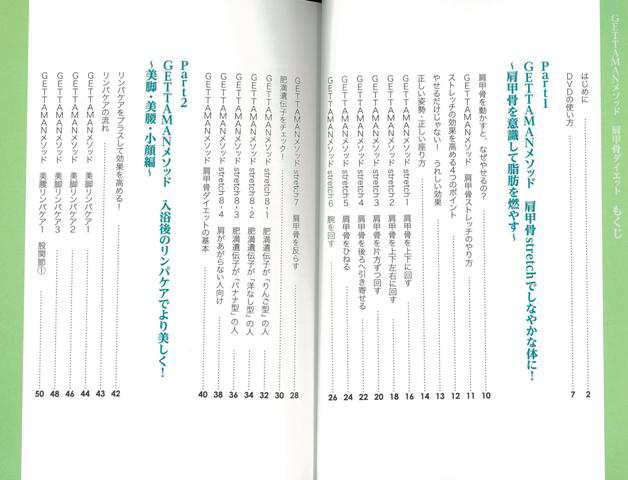 GETTAMANメソッド 肩甲骨ダイエット もくじ
はじめに 2
DVDの使い方 7
Part1
GETTAMANメソッド 肩甲骨stretchでしなやかな体に！
～肩甲骨を意識して脂肪を燃やす～
肩甲骨を動かすと、なぜやせるの？ 10
GETTAMANメソッド 肩甲骨ストレッチのやり方 11
ストレッチの効果を高める4つのポイント 12
やせるだけじゃない！ うれしい効果 13
正しい姿勢・正しい座り方 14
GETTAMANメソッド stretch1 肩甲骨を上下に回す 16
GETTAMANメソッド stretch2 肩甲骨を上下左右に回す 18
GETTAMANメソッド stretch3 肩甲骨を片方ずつ回す 20
GETTAMANメソッド stretch4 肩甲骨を後ろへ引き寄せる 22
GETTAMANメソッド stretch5 肩甲骨をひねる 24
GETTAMANメソッド stretch6 腕を回す 26
GETTAMANメソッド stretch7 肩甲骨を反らす 28
肥満遺伝子をチェック！ 30
GETTAMANメソッド stretch8-1 肥満遺伝子が「りんご型」の人 32
GETTAMANメソッド stretch8-2 肥満遺伝子が「洋なし型」の人 34
GETTAMANメソッド stretch8-3 肥満遺伝子が「バナナ型」の人 36
GETTAMANメソッド stretch8-4 肩があがらない人向け 38
GETTAMANメソッド 肩甲骨ダイエットの基本 40
Part2
GETTAMANメソッド 入浴後のリンパケアでより美しく！
～美脚・美腰・小顔編～
リンパケアをプラスして効果を高める！ 42
リンパケアの流れ 43
GETTAMANメソッド 美脚リンパケア1 44
GETTAMANメソッド 美脚リンパケア2 46
GETTAMANメソッド 美脚リンパケア3 48
GETTAMANメソッド 美腰リンパケア1 股関節① 50